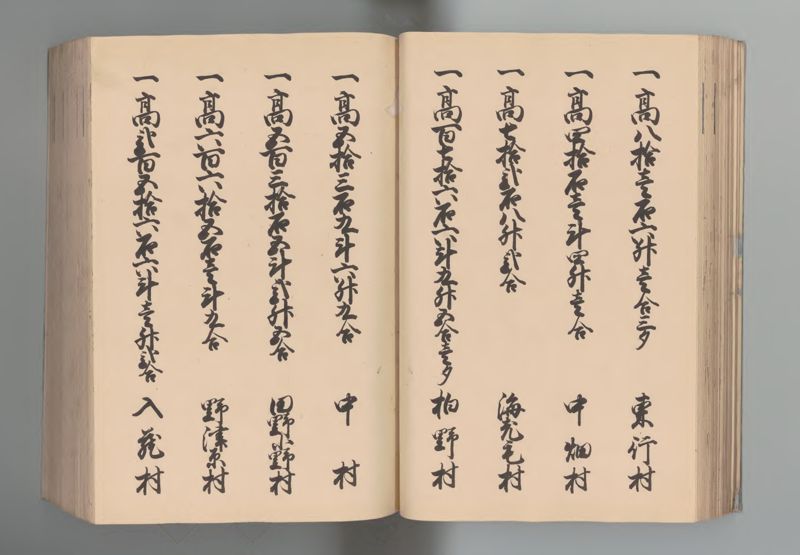 一高八拾壱石六升壱合三夕 東行村
一高四拾石壱斗四升壱合 中畑村
一高七拾弐石八升弐合 村
一高百七拾六石六斗九升五合壱夕 柏野村
一高五拾三石九斗六升九合 中村
一高五百三拾石五斗弐升五合 田野小野村
一高六百六拾五石壱斗九合 野津原村
一高弐百五拾六石六斗壱升弐合 入蔵村